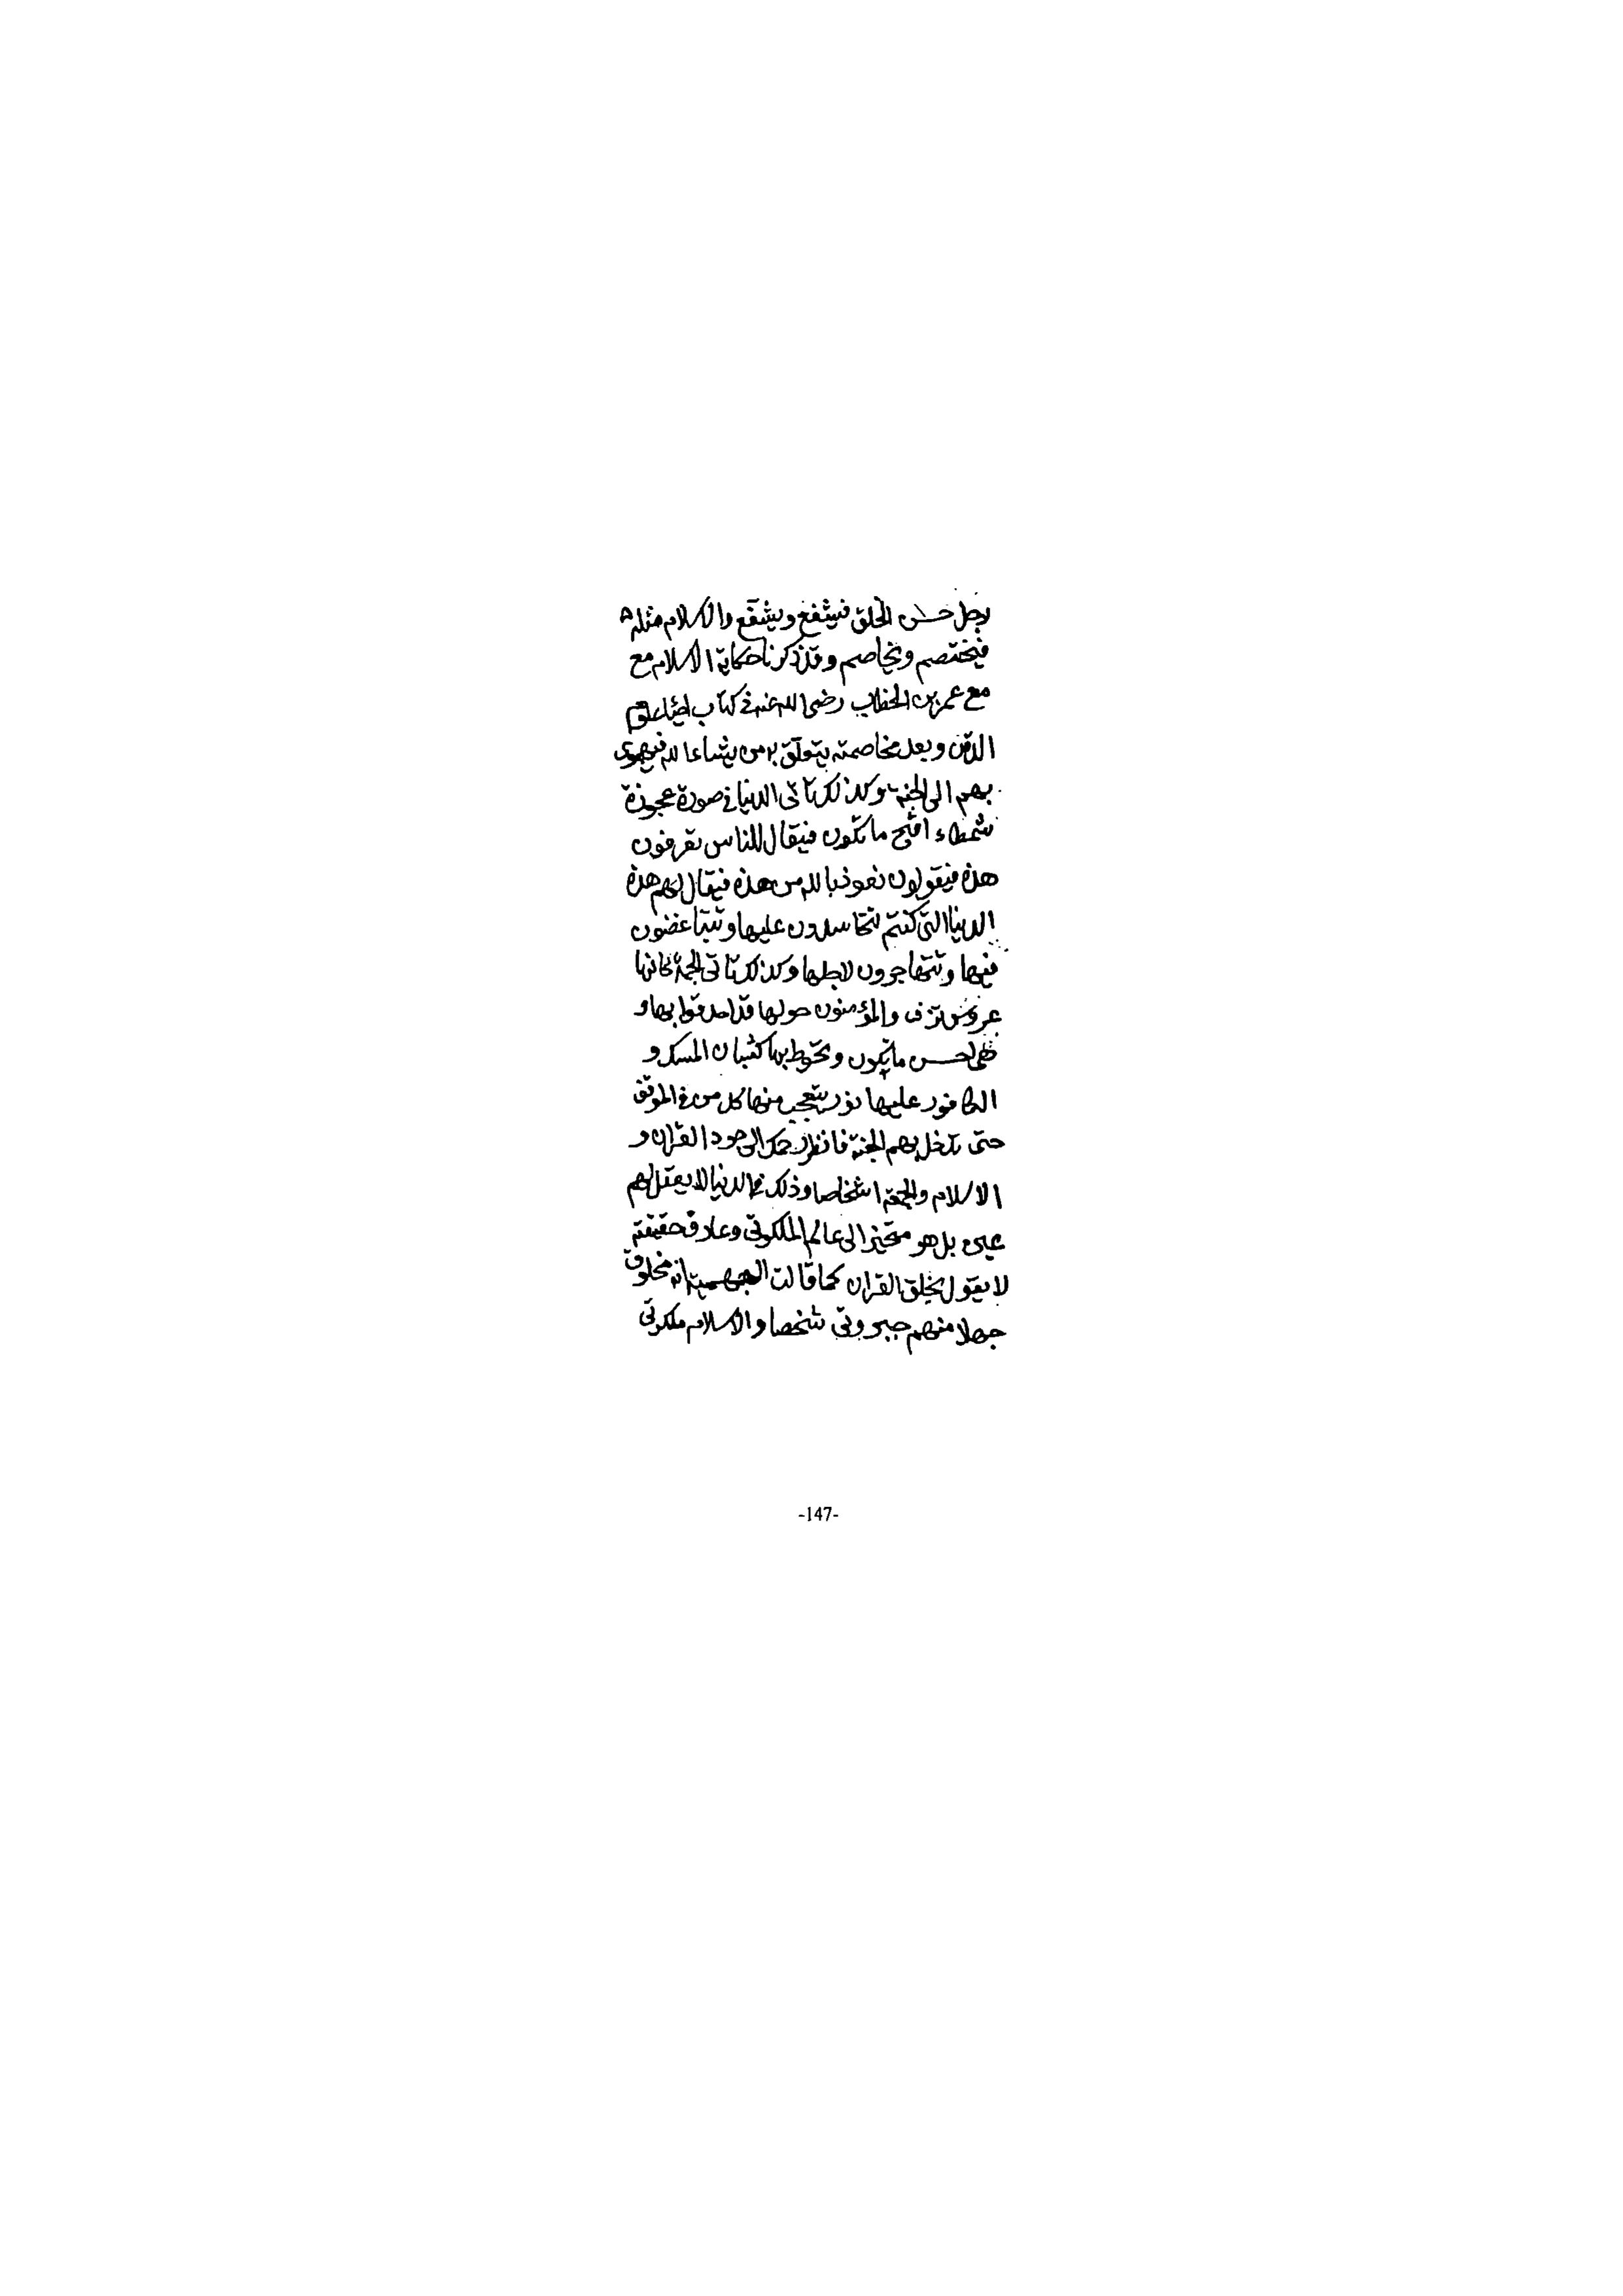 رجل حسن الخلق فيشفع ويشفع والاسلام مثله
فيختصم ويخاصم وقد ذكرنا حكاية الاسلام مع
مع عمر بن الخطاب رضي الله عنه في كتاب احيا علوم
الدين وبعد مخاصمته يتعلق به من يشاء الله فيهوى
بهم الى الجنة وكذلك تاتى الدنيا في صورة عجوزة
شمطاء اقبح ما تكون فيقال للناس تعرفون
هذه فيقولون نعوذ بالله من هذه فيقال لهم هذه
الدنيا التى كنتم تتحاسدون عليها وتتباغضون
فيها وتتهاجرون لاجلها وكذلك تاتى الجمعة كانها
عروس تزف والمؤمنون حولها قد احدقوا بها و
هى احسن ما يكون ويحوط بها كثبان المسك و
الكافور عليها نور يتعجب منها كل من في الموقف
حتى تدخل بهم الجنة فانظر رحمك الى جود القران و
الاسلام والجمعة اشخاصا وذلك في الدنيا لا يعقل لهم
عين بل هو متحيز الى عالم الملكوتى وعارف حقيقته
لا يقول بخلق القران كما قالت الجهمية انه مخلوق
جهلا منهم جبروتى شخصا والاسلام ملكوتى
-147-